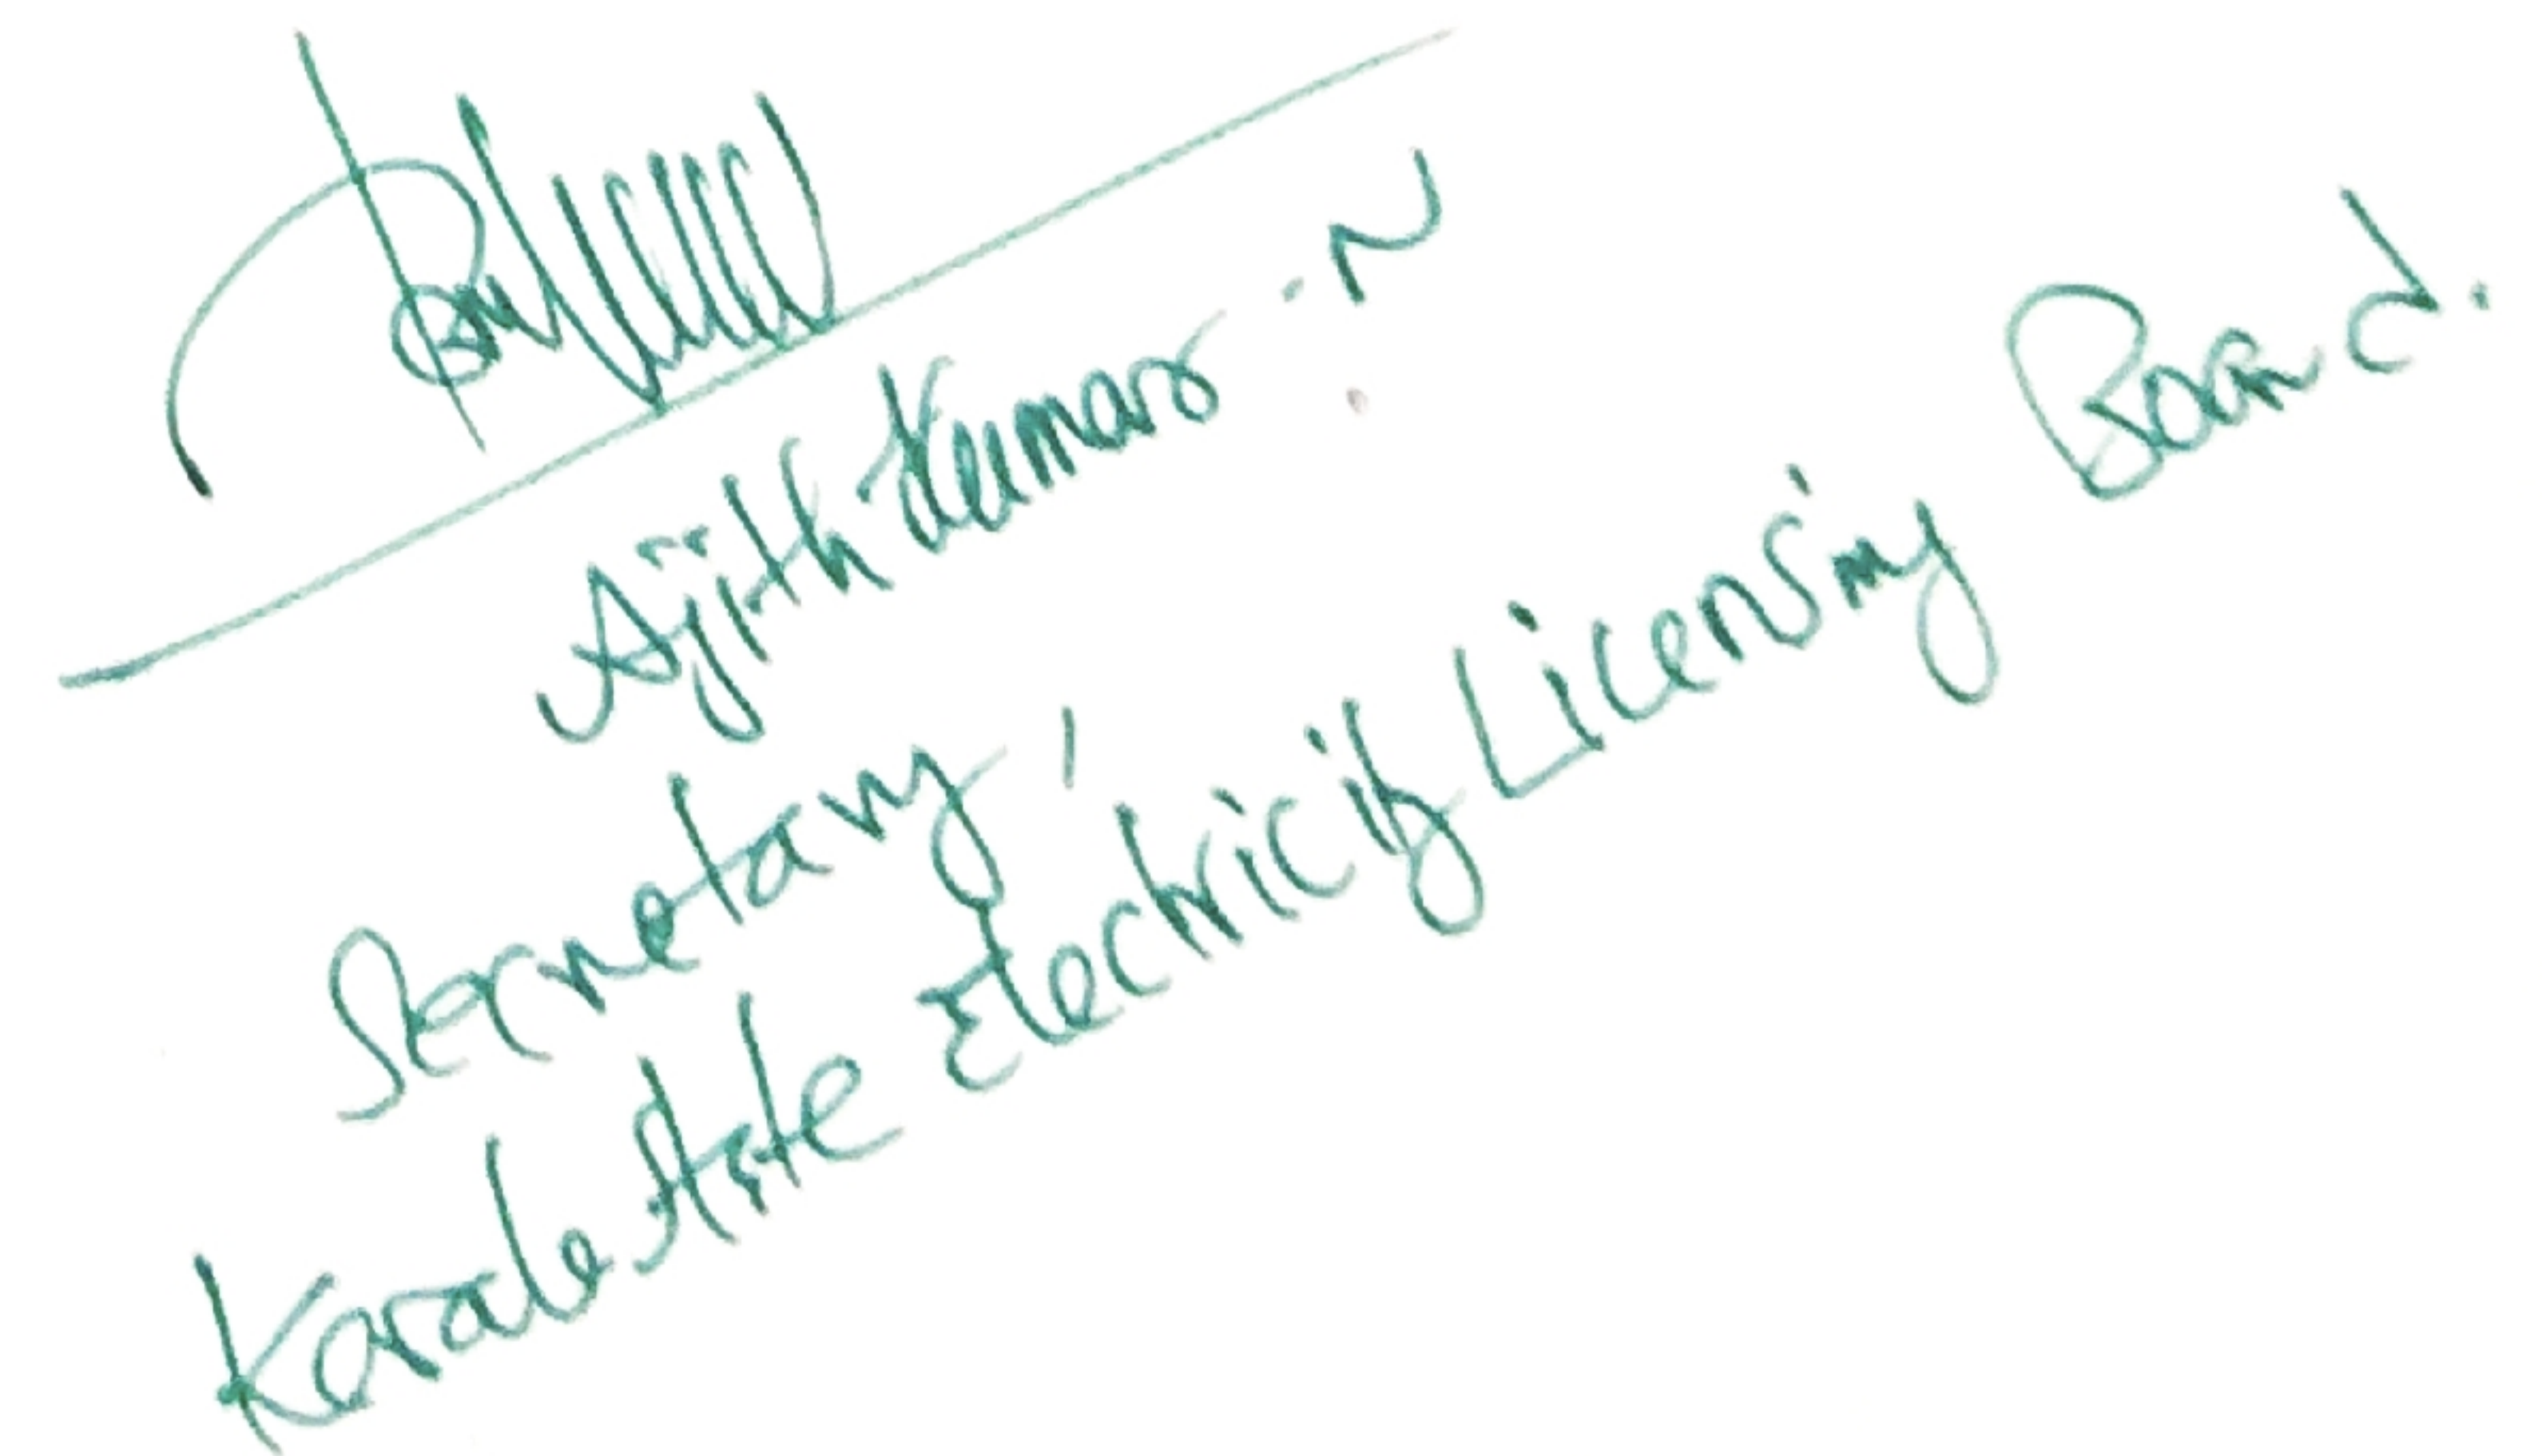 Ajith Kumar. N
Secretary,
Kerala State Electricity Licensing Board.